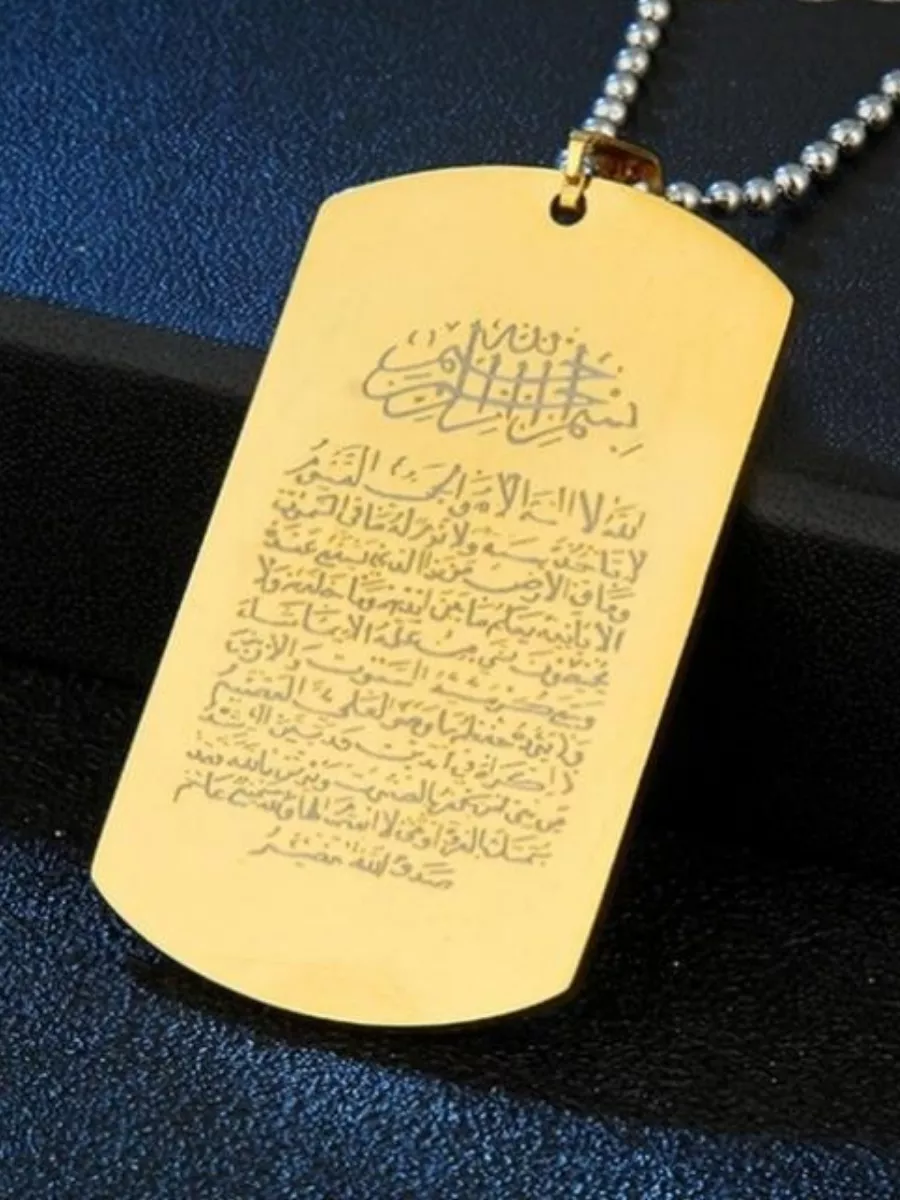 بسم الله الرحمن الرحيم
الله لا اله الا هو الحي القيوم
لا تاخذه سنة ولا نوم له ما في السموت
وما في الارض من ذا الذي يشفع عنده
الا باذنه يعلم ما بين ايديهم وما خلفهم ولا
يحيطون بشي من علمه الا بما شاء
وسع كرسيه السموت والارض
ولا يؤده حفظهما وهو العلي العظيم
لا اكراه في الدين قد تبين الرشد
من الغي فمن يكفر بالطغوت ويؤمن بالله فقد
استمسك بالعروة الوثقى لا انفصام لها والله سميع عليم
صدق الله العظيم